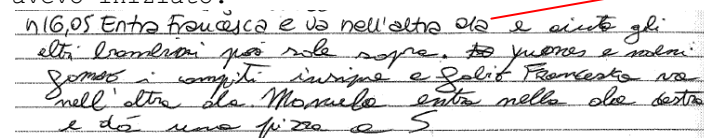 avevo iniziato.
h 16,05 Entra Francesca e va nell'altra ala e aiuta gli
altri bambini poi sale sopra. e
i compiti insieme a Francesca va
nell'altra ala. Manuela entra nella ala destra
e dà una pizza a S